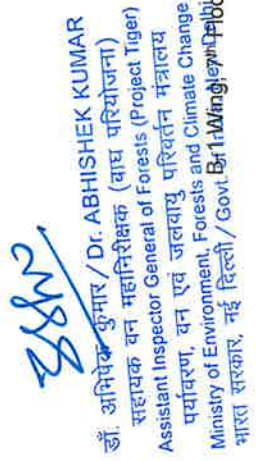 डॉ. अभिषेक कुमार / Dr. ABHISHEK KUMAR
सहायक वन महानिरीक्षक (बाघ परियोजना)
Assistant Inspector General of Forests (Project Tiger)
पर्यावरण, वन एवं जलवायु परिवर्तन मंत्रालय
Ministry of Environment, Forests and Climate Change
भारत सरकार, नई दिल्ली / Govt. New Delhi
B-1 Wing, 7th